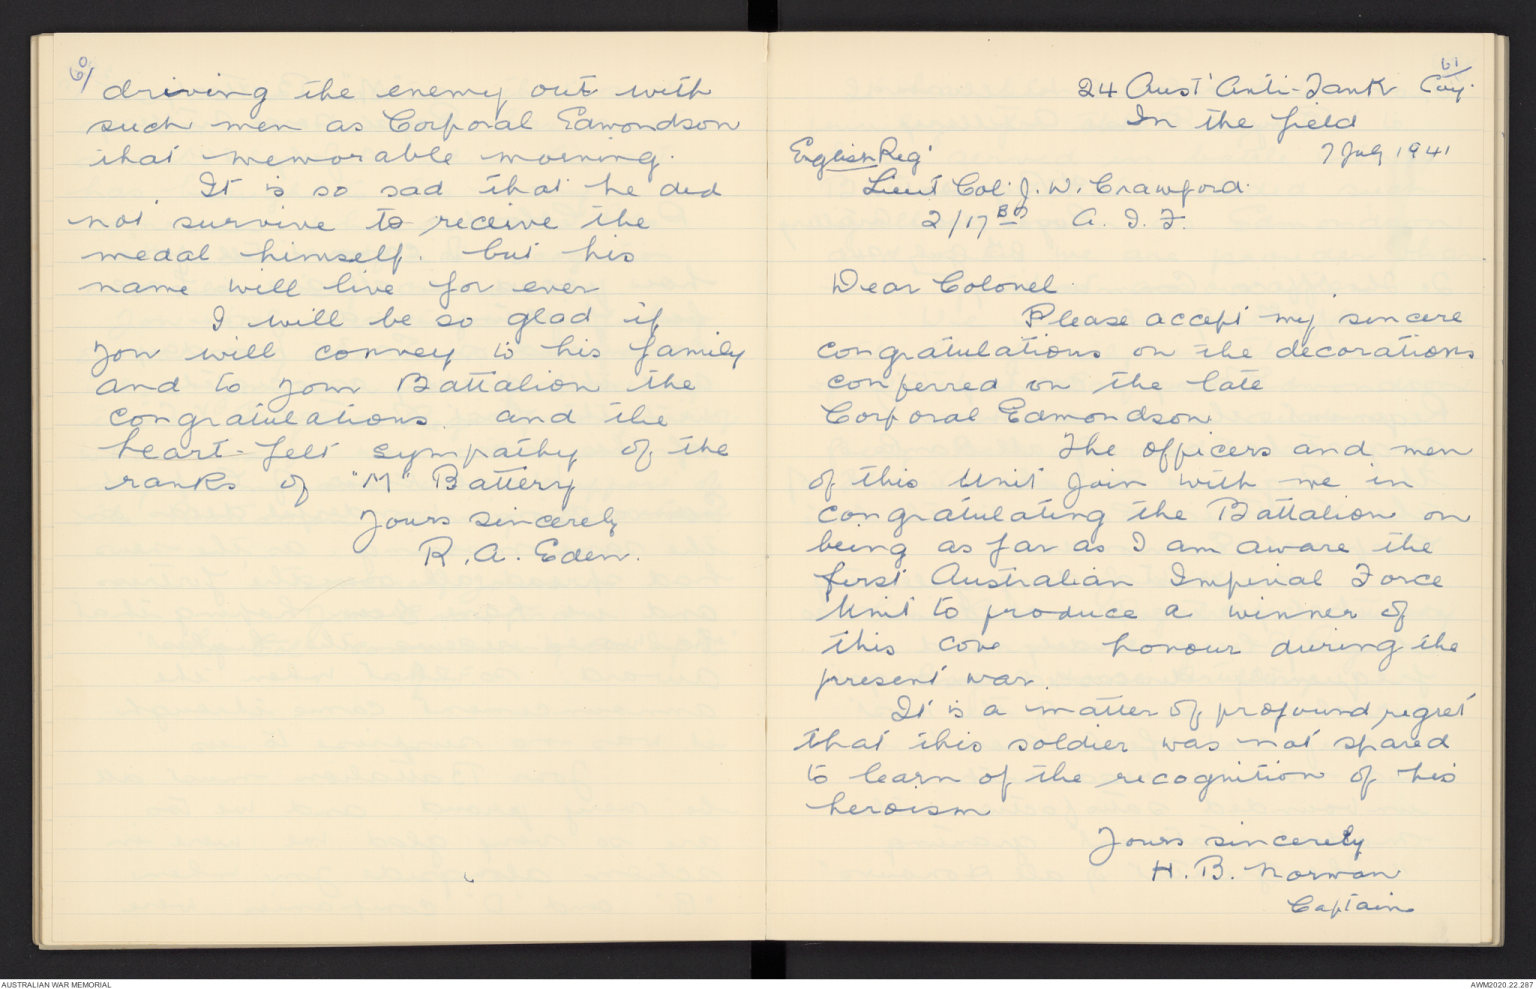 60/
driving the enemy out with
such men as Corporal Edmondson
that memorable morning.
It is so sad that he did
not survive to receive the
medal himself. but his
name will live for ever
I will be so glad if
you will convey to his family
and to your Battalion the
congratulations and the
heart-felt sympathy of the
ranks of "M" Battery
Yours sincerely
R.A. Eden.
61
24 Aust Anti-Tank Coy.
In the field
7 July 1941
English Reg'
Lieut Col. J. W. Crawford.
2/17 Bn A. I. F.
Dear Colonel.
Please accept my sincere
congratulations on the decorations
conferred on the late
Corporal Edmondson
The officers and men
of this Unit join with me in
congratulating the Battalion on
being as far as I am aware the
first Australian Imperial Force
Unit to produce a winner of
this honour during the
present war.
It is a matter of profound regret
that this soldier was not spared
to learn of the recognition of his
heroism
Yours sincerely
H. B. Norman
Captain
AUSTRALIAN WAR MEMORIAL
AWM2020.22.287